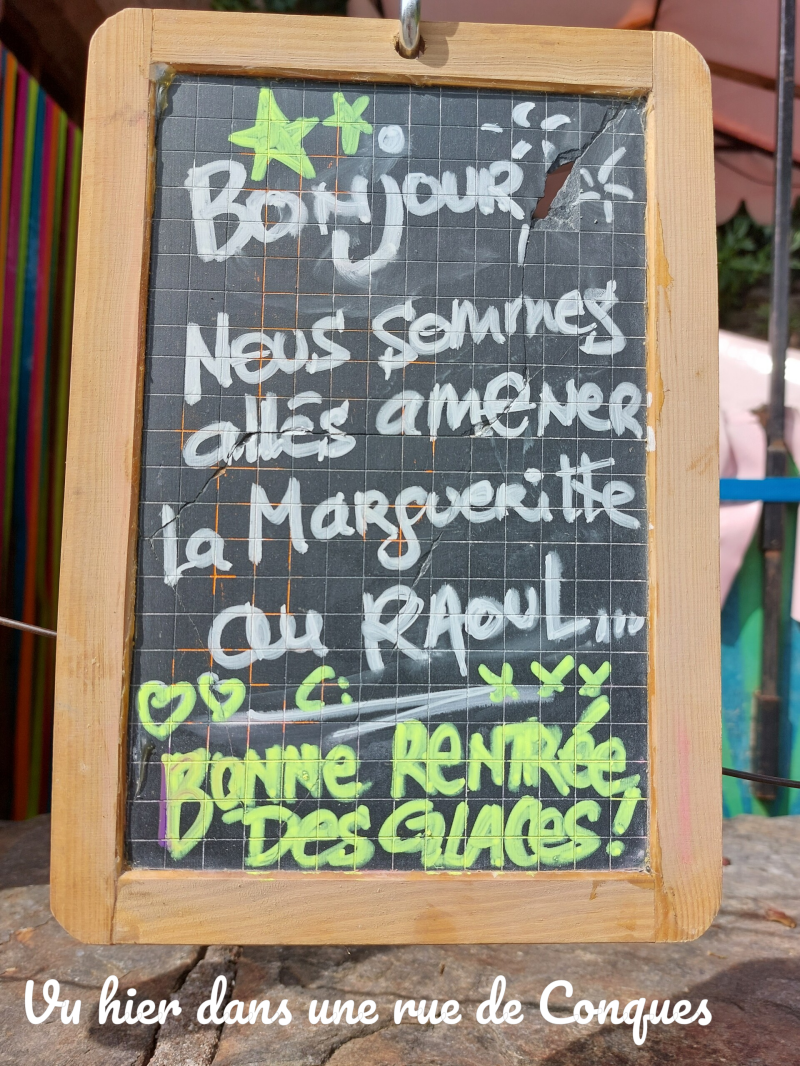 Bonjour
Nous sommes
allés amener
la Margueritte
au Raoul...
Bonne Rentrée,
Des Glaces!
Vu hier dans une rue de Conques